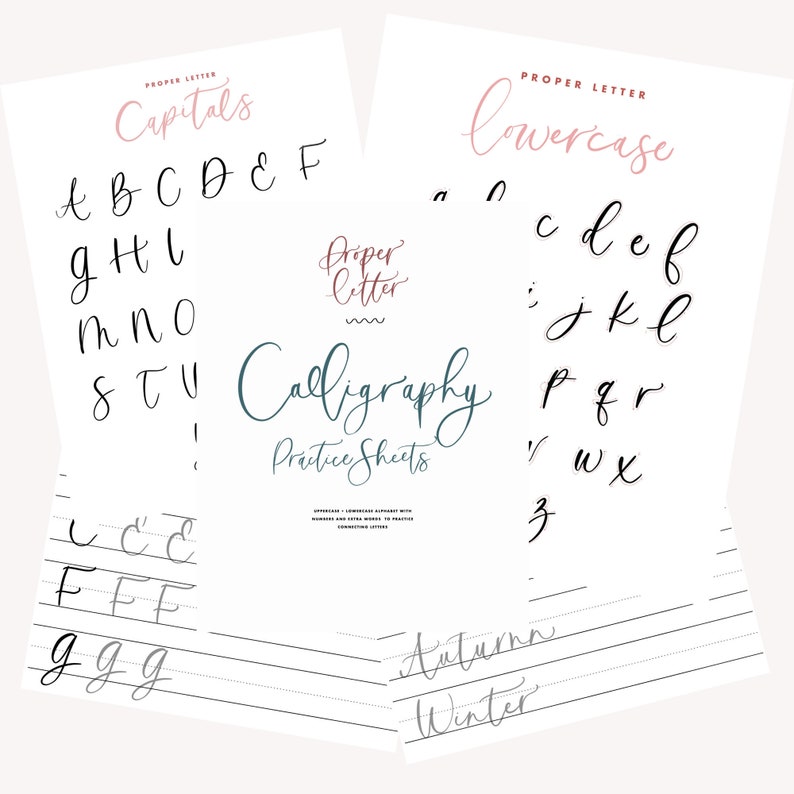 PROPER LETTER
Capitals
A B C D E F
g H I
M N O
S T U
E E
F F F
g g g
PROPER LETTER
lowercase
c d e f
j k l
p q r
w x
z
Autumn
Winter
Proper
Letter
Calligraphy
Practice Sheets
UPPERCASE + LOWERCASE ALPHABET WITH
NUMBERS AND EXTRA WORDS TO PRACTICE
CONNECTING LETTERS